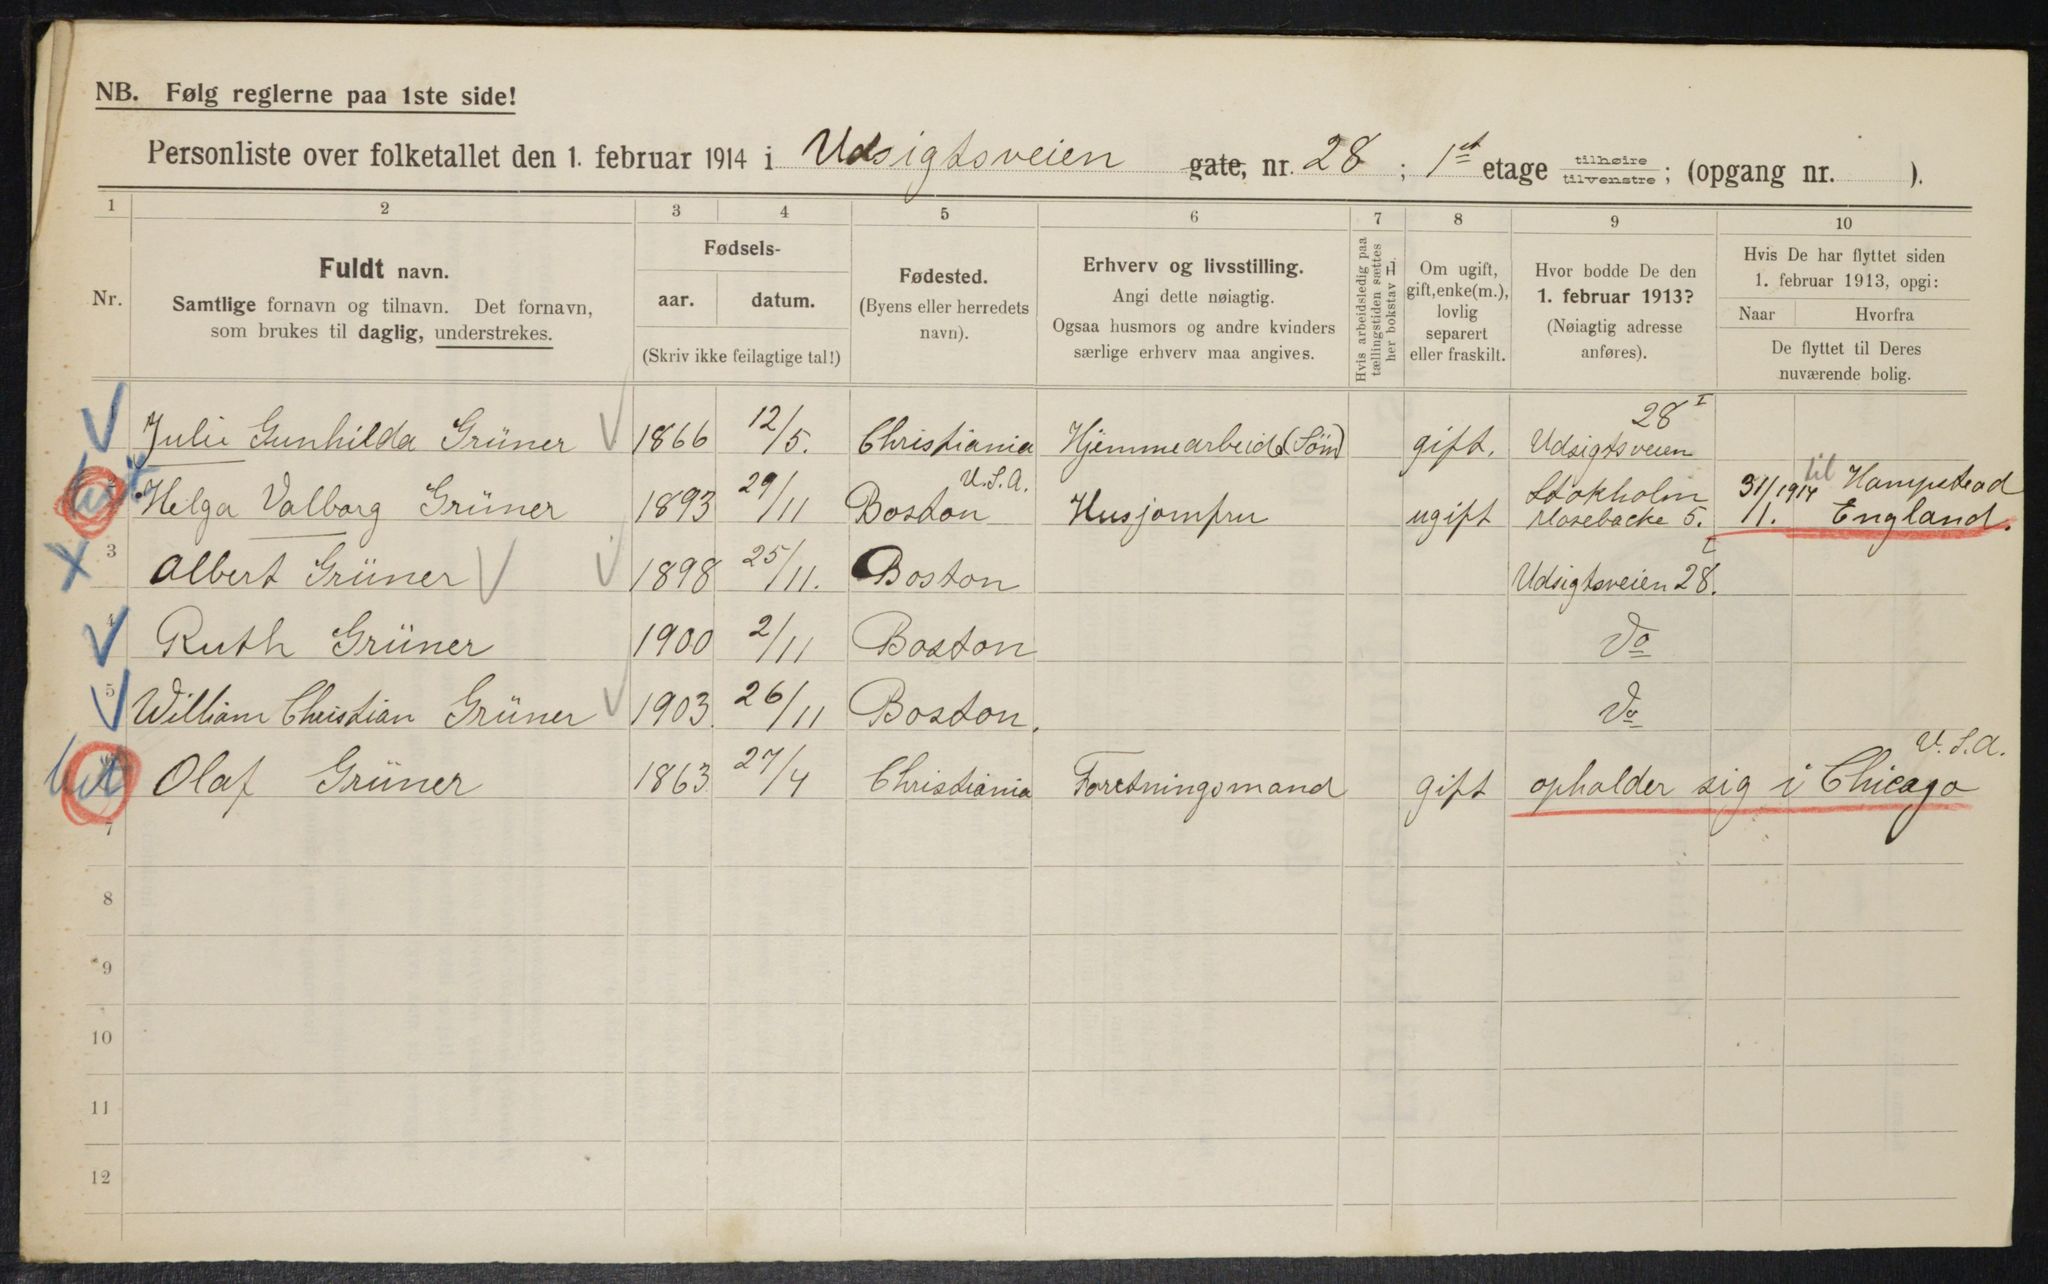 NB. Følg reglerne paa 1ste side!
Personliste over folketallet den 1. februar 1914 i Udsigtsveien gate, nr. 28; 1st etage tilhøire tilvenstre; (opgang nr. ).
1 2 3 4 5 6 7 8 9 10
Nr.
Fuldt navn.
Samtlige fornavn og tilnavn. Det fornavn,
som brukes til daglig, understrekes.
Fødsels-
aar. datum.
(Skriv ikke feilagtige tal!)
Fødested.
(Byens eller herredets
navn).
Erhverv og livsstilling.
Angi dette nøiagtig.
Ogsaa husmors og andre kvinders
særlige erhverv maa angives.
Hvis arbeidsledig paa
tællingstiden sættes
her bokstav L
Om ugift,
gift, enke(m.),
lovlig
separert
eller fraskilt.
Hvor bodde De den
1. februar 1913?
(Nøiagtig adresse
anføres).
Hvis De har flyttet siden
1. februar 1913, opgi:
Naar Hvorfra
De flyttet til Deres
nuværende bolig.
Julie Gunhilda Grüner 1866 12/5. Christiania Hjemmearbeide (Söm) gift. 28 I Udsigtsveien
2 Helga Valborg Grüner 1893 29/11 Boston U.S.A. Husjomfru ugift Stokholm Mosebacke 5. 31/1. 1914 til Hampstead England.
3 Albert Grüner 1898 25/11. Boston Udsigtsveien 28. I
4 Ruth Grüner 1900 2/11 Boston Do
5 William Christian Grüner 1903. 26/11 Boston. Do
Olaf Grüner 1863 27/4 Christiania Forretningsmand gift opholder sig i Chicago U.S.A.
7
8
9
10
11
12